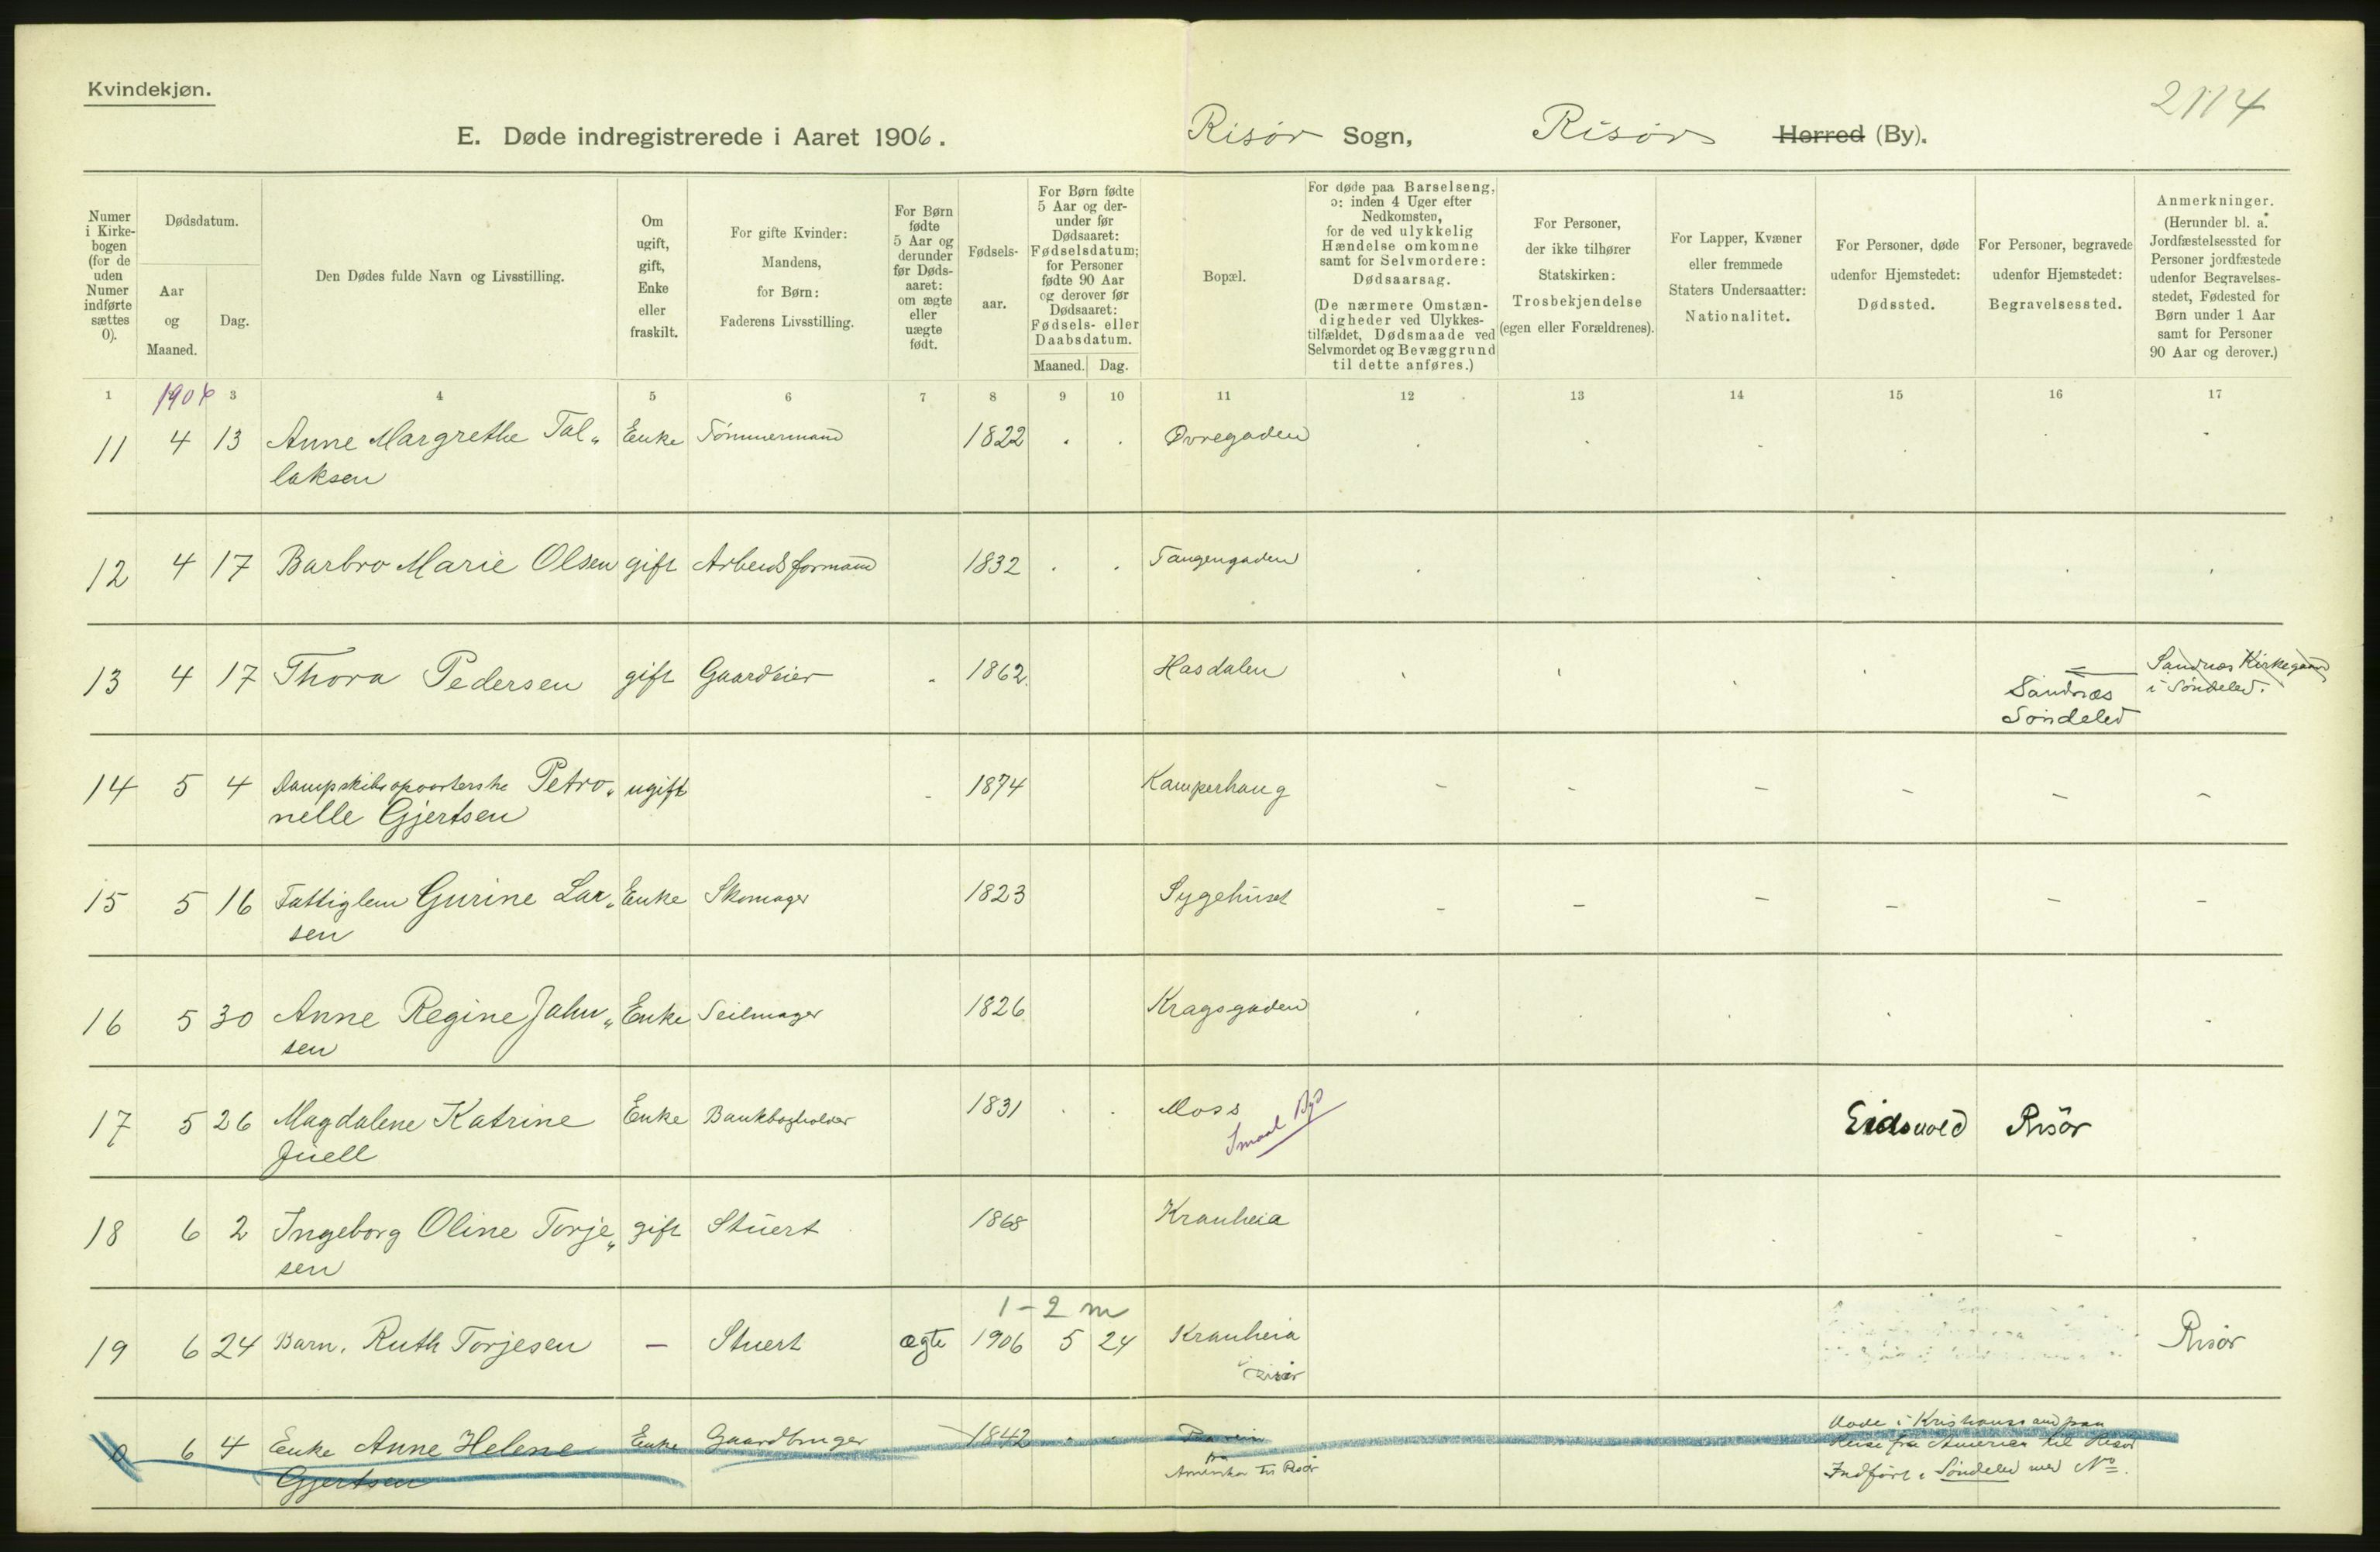 Kvindekjøn.
2114
E. Døde indregistrerede i Aaret 1906. Risør Sogn, Risør Herred (By).
Numer i Kirkebogen (for de uden Numer indførte sættes 0).
Dødsdatum.
Aar og Maaned.
Dag.
Den Dødes fulde Navn og Livsstilling.
Om ugift, gift, Enke eller fraskilt.
For gifte Kvinder: Mandens, for Børn: Faderens Livsstilling.
For Børn fødte 5 Aar og derunder før Dødsaaret: om ægte eller uægte født.
Fødselsaar.
For Børn fødte 5 Aar og derunder før Dødsaaret: Fødselsdatum; for Personer fødte 90 Aar og derover før Dødsaaret: Fødsels- eller Daabsdatum.
Maaned. Dag.
Bopæl.
For døde paa Barselseng, ɔ: inden 4 Uger efter Nedkomsten, for de ved ulykkelig Hændelse omkomne samt for Selvmordere: Dødsaarsag.
(De nærmere Omstændigheder ved Ulykkestilfældet, Dødsmaade ved Selvmordet og Bevæggrund til dette anføres.)
For Personer, der ikke tilhører Statskirken: Trosbekjendelse (egen eller Forældrenes).
For Lapper, Kvæner eller fremmede Staters Undersaatter: Nationalitet.
For Personer, døde udenfor Hjemstedet: Dødssted.
For Personer, begravede udenfor Hjemstedet: Begravelsessted.
Anmerkninger.
(Herunder bl. a. Jordfæstelsessted for Personer jordfæstede udenfor Begravelsesstedet, Fødested for Børn under 1 Aar samt for Personer 90 Aar og derover.)
1 1906 3 4 5 6 7 8 9 10 11 12 13 14 15 16 17
11 4 13 Anne Margrethe Tal„ Enke Tømmermand 1822 Øvregaden
laksen
12 4 17 Barbro Marie Olsen gift Arbeidsformand 1832 Tangengaden
13 4 17 Thora Pedersen gift Gaardeier 1862 Hasdalen Sandnæs Søndeled Sandnæs Kirkegaard i Søndeled.
14 5 4 Dampskibsopvarterske Petro„ ugift 1874 Kamperhaug – – – – – –
nelle Gjertsen
15 5 16 Fattiglem Gurine Lar„ Enke Skomager 1823 Sygehuset – – – – – –
sen
16 5 30 Anne Regine Jahn„ Enke Seilmager 1826 Kragsgaden
sen
17 5 26 Magdalene Katrine Enke Bankbogholder 1831 Moss Eidsvold Risör
Juell Smaal
18 6 2 Ingeborg Oline Torje„ gift Stuert 1868 Kranheia
sen
1 – 2 m
19 6 24 Barn. Ruth Torjesen – Stuert ægte 1906 5 24 Kranheia Risör
Risør
0 6 4 Enke Anne Helene Enke Gaardbruger 1842 Døde i Kristianssand paa
Reise fra Amerika til Risør
Gjertsen Amerika til Risør Indført i Søndeled med No.